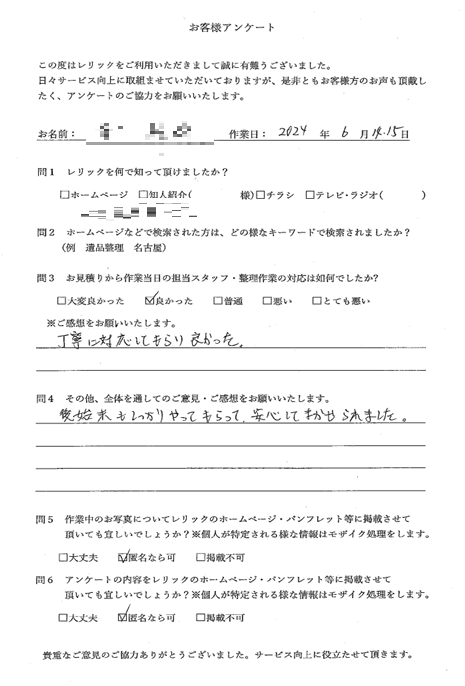 お客様アンケート
この度はレリックをご利用いただきまして誠に有難うございました。
日々サービス向上に取組ませていただいておりますが、是非ともお客様方のお声も頂戴し
たく、アンケートのご協力をお願いいたします。
お名前： 作業日： 2024 年 6 月 14.15日
問1 レリックを何で知って頂けましたか？
□ホームページ □知人紹介( 様)□チラシ □テレビ・ラジオ( )
問2 ホームページなどで検索された方は、どの様なキーワードで検索されましたか？
（例 遺品整理 名古屋）
問3 お見積りから作業当日の担当スタッフ・整理作業の対応は如何でしたか?
□大変良かった ☑良かった □普通 □悪い □とても悪い
※ご感想をお願いいたします。
丁寧に対応してもらい良かった。
問4 その他、全体を通してのご意見・ご感想をお願いいたします。
後始末もしっかりやってもらって、安心してまかせられました。
問5 作業中のお写真についてレリックのホームページ・パンフレット等に掲載させて
頂いても宜しいでしょうか？※個人が特定される様な情報はモザイク処理をします。
□大丈夫 ☑匿名なら可 □掲載不可
問6 アンケートの内容をレリックのホームページ・パンフレット等に掲載させて
頂いても宜しいでしょうか？※個人が特定される様な情報はモザイク処理をします。
□大丈夫 ☑匿名なら可 □掲載不可
貴重なご意見のご協力ありがとうございました。サービス向上に役立たせて頂きます。